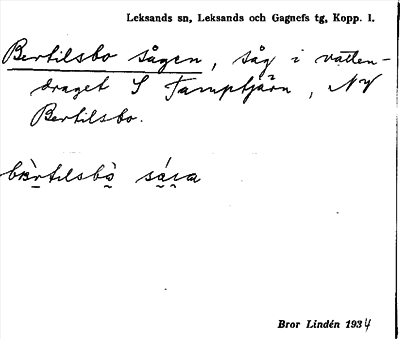 Leksands sn, Leksands och Gagnefs tg, Kopp. l.
Bertilsbo sågen, såg i vatten-
draget S Tamptjärn, NV
Bertilsbo.
Bror Lindén 1934